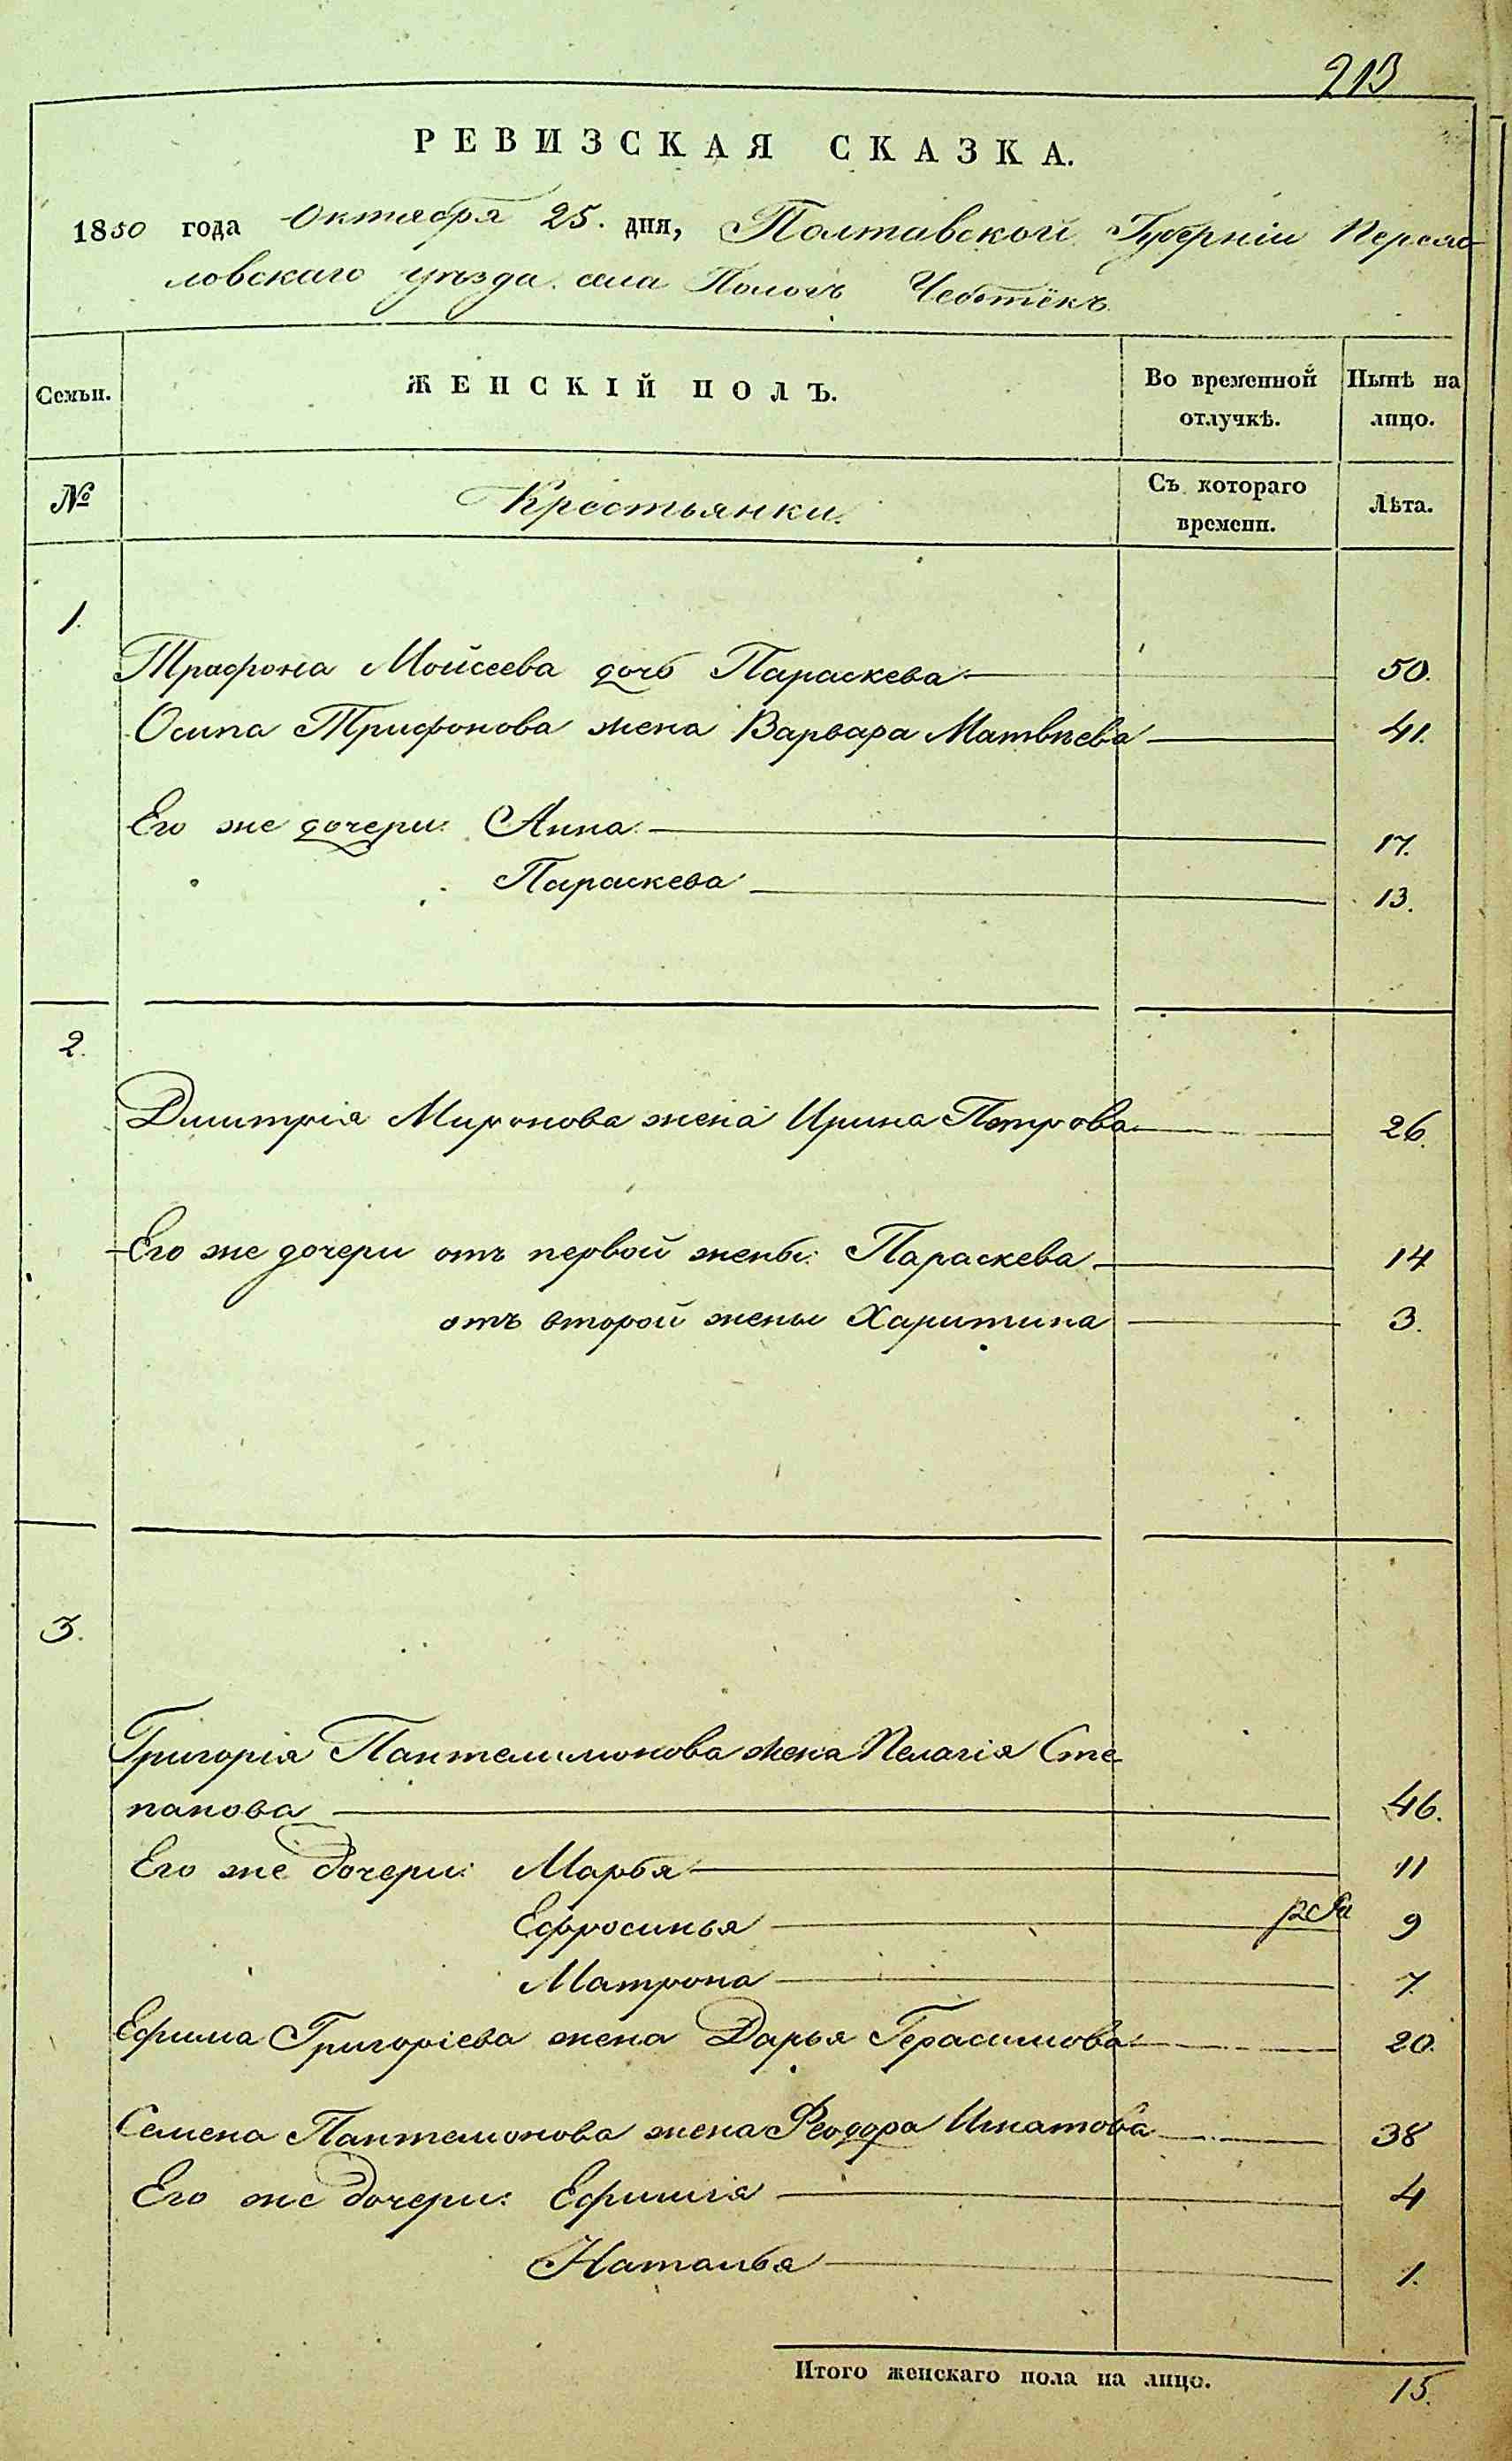 213
РЕВИЗСКАЯ СКАЗКА.
1850 года Октября 25. дня, Полтавской Губерніи Переяс-
ловскаго уѣзда села Пологъ Чеботёкъ
Семьи. ЖЕНСКІЙ ПОЛЪ. Во временной отлучкѣ. Нынѣ на лицо.
№ Крестьянки. Съ котораго времени. Лѣта.
1.
Трифона Мойсеева дочь Параскева 50.
Осипа Трифонова жена Варвара Матвѣева 41.
Его же дочери: Анна 17.
Параскева 13.
2.
Дмитрія Миронова жена Ирина Петрова 26.
Его же дочери отъ первой жены: Параскева 14
отъ второй жены Харитина 3.
3.
Григорія Пантелимонова жена Пелагія Сте-
панова 46.
Его же дочери: Марья 11
Ефросинья 9
Матрона 7.
Ефима Григоріева жена Дарья Герасимова 20.
Семена Пантемонова жена Феодора Игнатова 38
Его же дочери: Ефимія 4
Наталья 1.
Итого женскаго пола на лицо. 15.